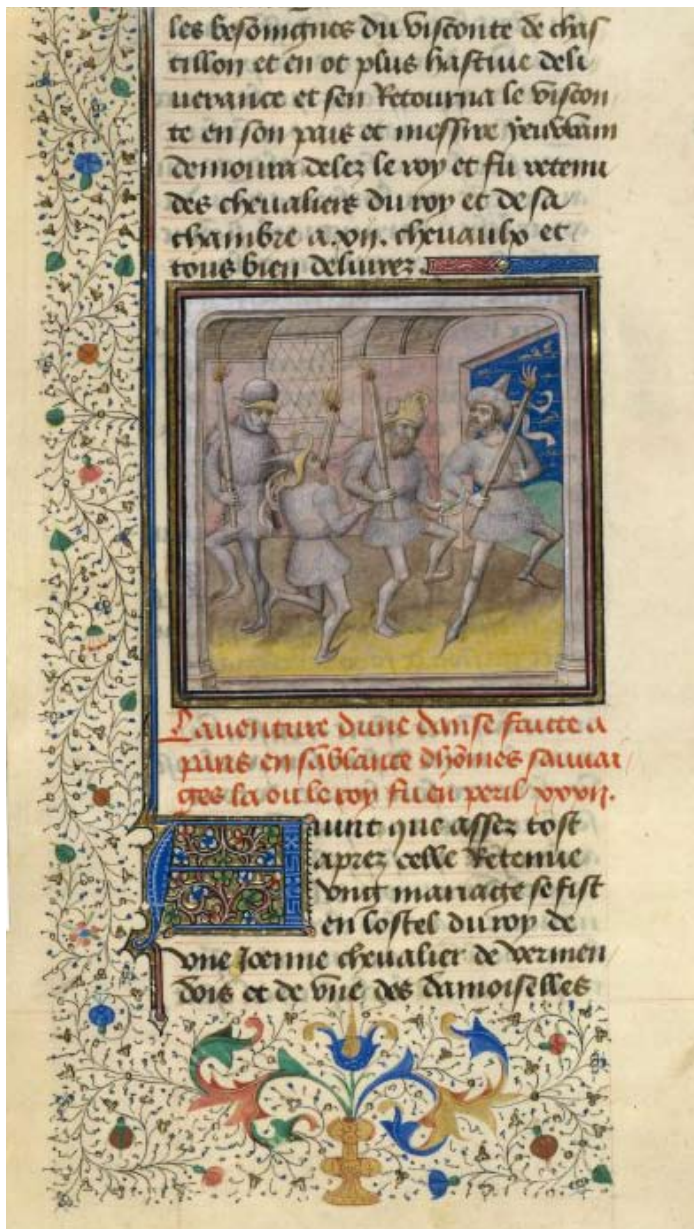 les besoingnes du visconte de chas
tillon et en ot plus hastiue deli
uerance et sen Retourna le viscon
te en son pais et messire yeuwain
demoura delez le roy et fu retenu
des cheualiers du roy et de sa
chambre a.xii. cheuaulx et
tous bien deliurez.
Lauenture dune danse faicte a
paris en sablance dhomes sauua
ges la ou le roy fu en peril xxxii.
Auint que assez tost
aprez celle Retenue
vng mariage se fist
en lostel du roy de
vne Joenne cheualier de vermen
dois et de vne des damoiselles